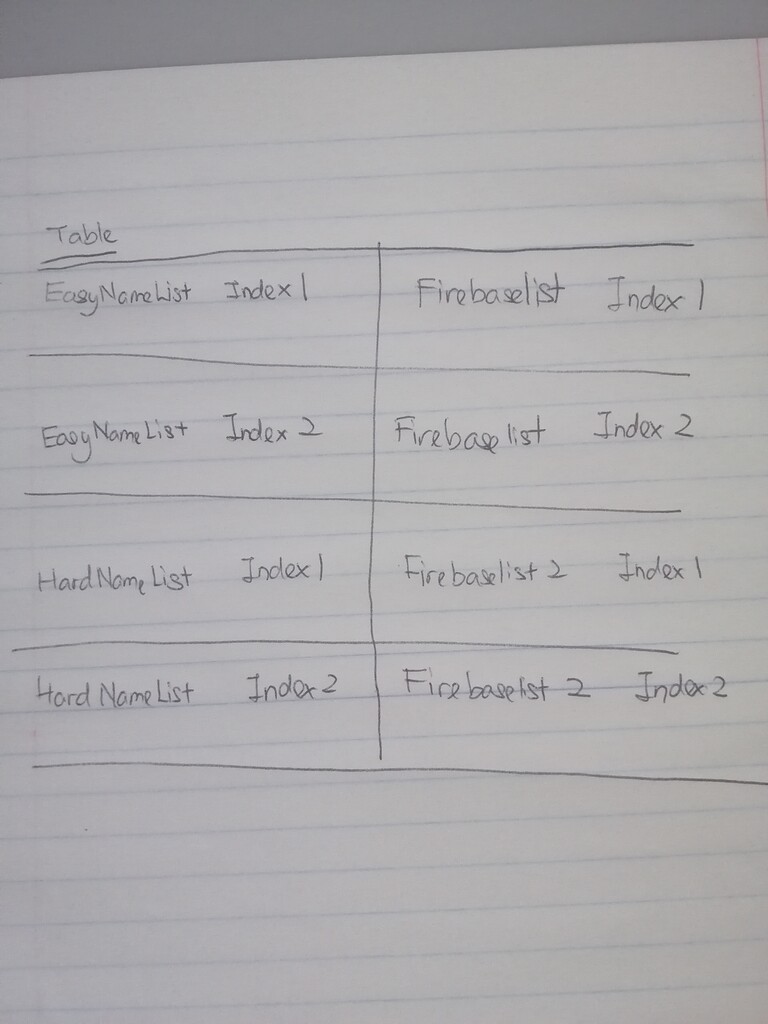 Table
EasyNameList Index 1 Firebaselist Index 1
EasyNameList Index 2 Firebaselist Index 2
HardNameList Index 1 Firebaselist 2 Index 1
HardNameList Index 2 Firebaselist 2 Index 2